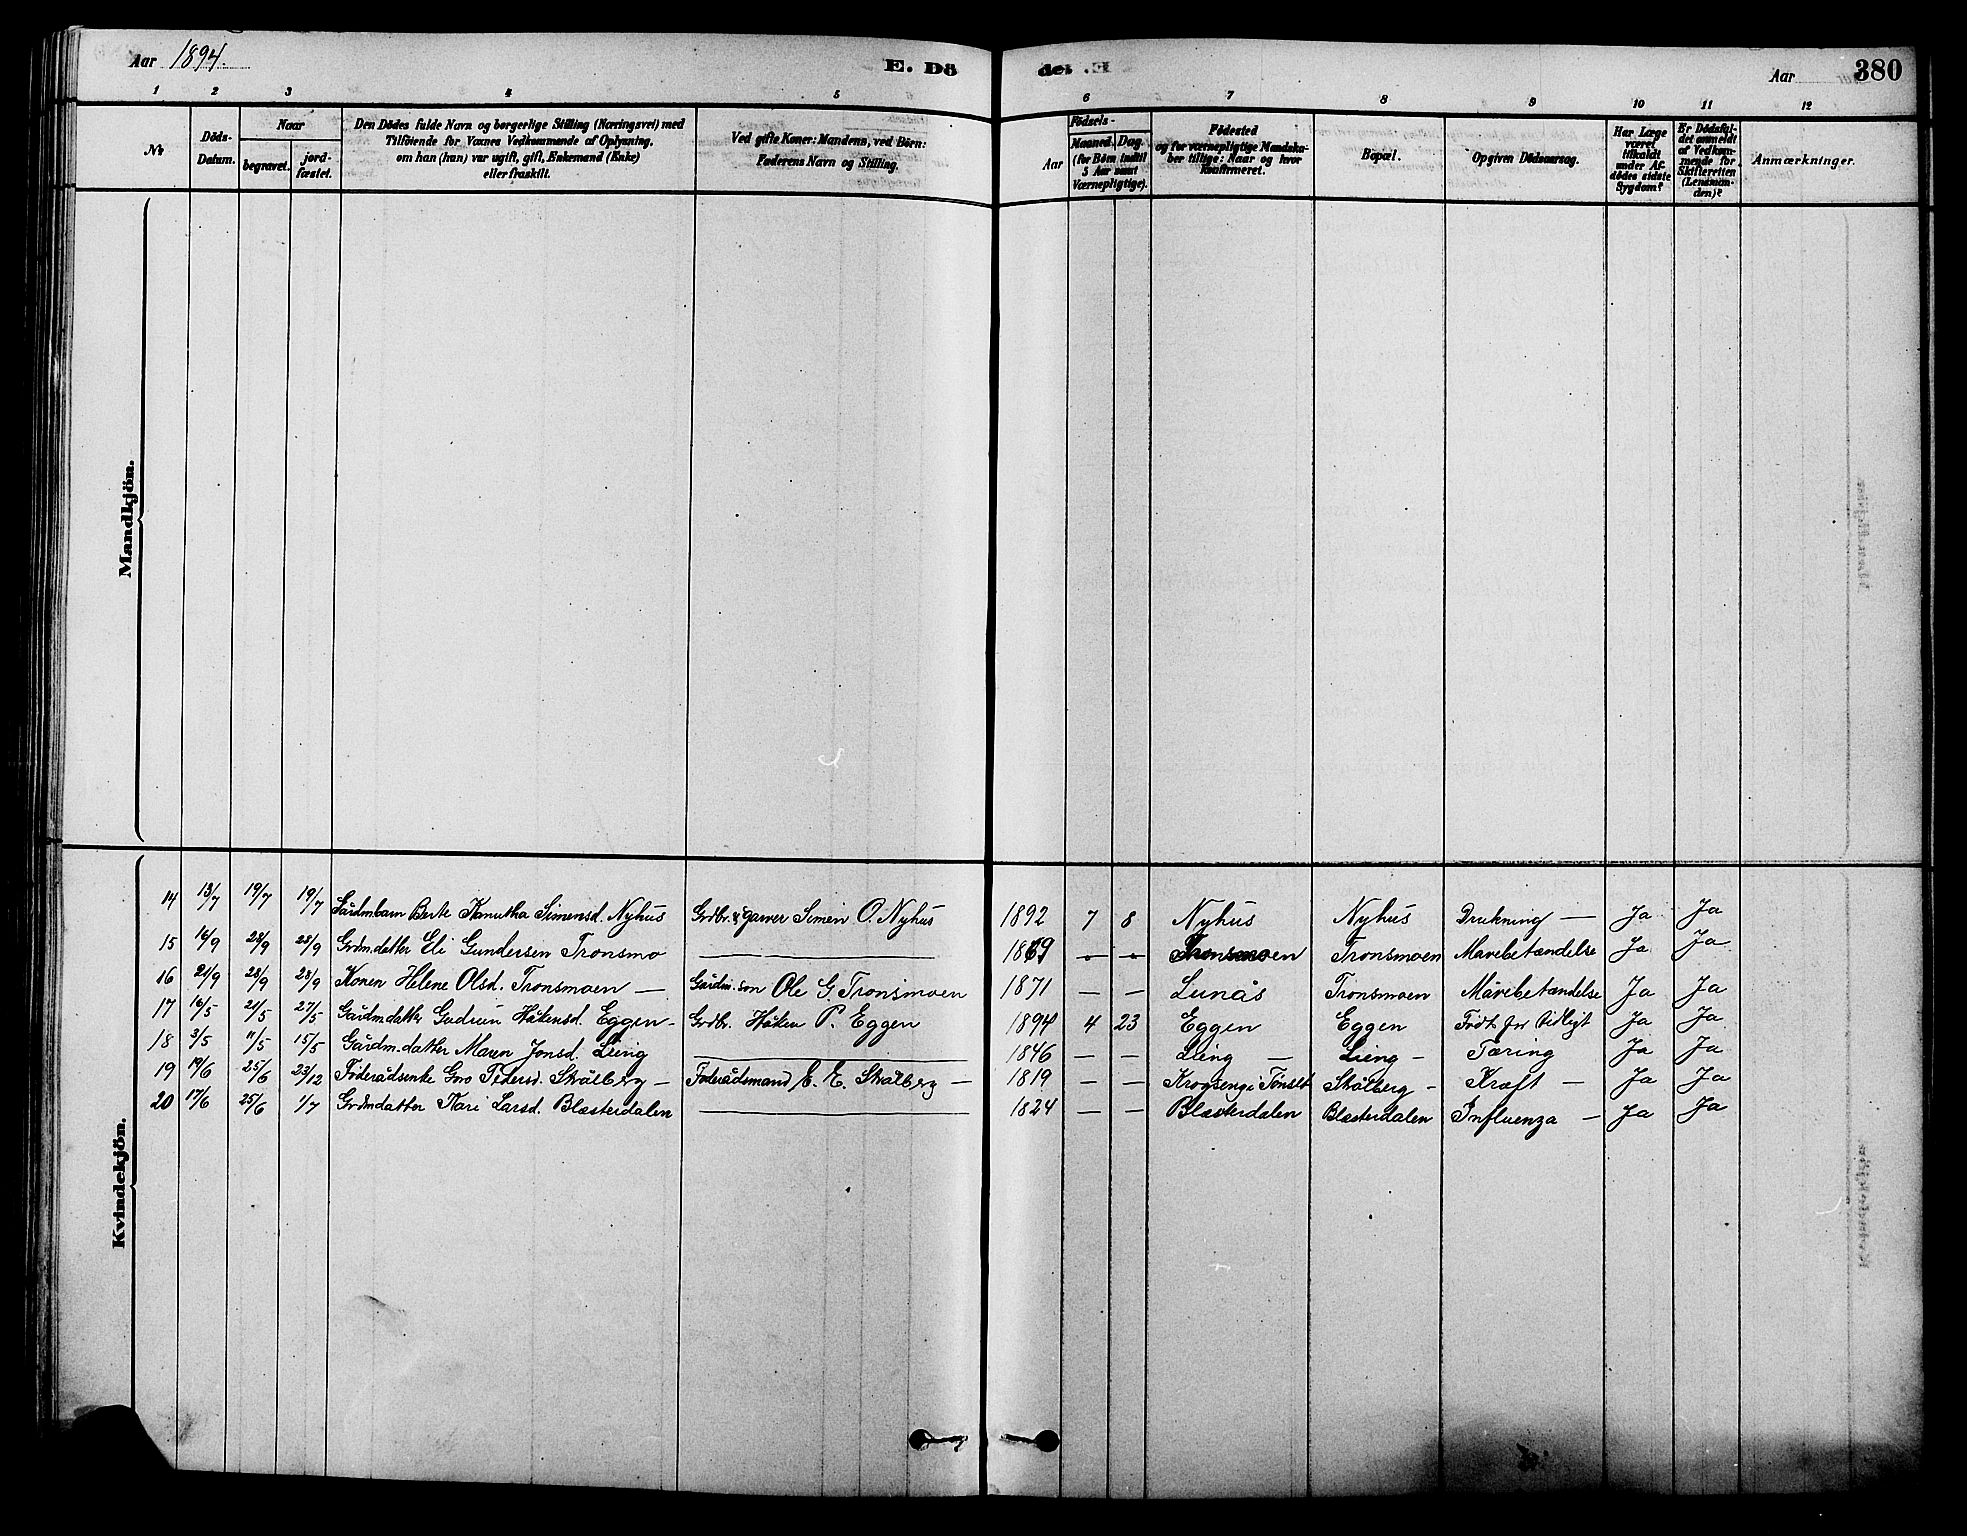 Aar 1894.
E. Dö
de. E
Aar
380
1 2 3 4 5 6 7 8 9 10 11 12
No
Döds-Datum.
Naar
begravet.
jord-fæstet.
Den Dødes fulde Navn og borgerlige Stilling (Næringsvei) med
Tilføiende for Voxnes Vedkommende af Oplysning,
om han (hun) var ugift, gift, Enkemand (Enke)
eller fraskilt.
Ved gifte Koner: Mandens, ved Børn:
Faderens Navn og Stilling.
Aar
Fødsels-
Maaned. Dag.
(for Børn indtil
5 Aar samt
Værnepligtige).
Födested
og for værnepligtige Mandska-
ber tillige: Naar og hvor
konfirmeret.
Bopæl.
Opgiven Dödsaarsag.
Har Læge
været
tilkaldt
under Af-
dødes sidste
Sygdom?
Er Dödsfal-
det anmeldt
af Vedkom-
mende for
Skifteretten
(Lensman-
den)?
Anmærkninger.
Mandkjön.
Kvindekjön.
14 13/7 19/7 19/7 Gårdmbarn Berte Kanutha Simensd. Nyhus Grdbr. & garver Simen O. Nyhus 1892 7 8 Nyhus Nyhus Drukning — Ja Ja
15 16/9 28/9 28/9 Grdmdatter Eli Gundersen Tronsmo — 1869 — — Tronsmoen Tronsmoen Mavebetændelse Ja Ja
16 21/9 28/9 28/9 Konen Helene Olsd. Tronsmoen — Gårdm.son Ole G. Tronsmoen 1871 — — Lunås Tronsmoen Mavebetændelse Ja Ja
17 16/5 21/5 27/5 Gårdmdatter Gudrun Håkensd. Eggen - Grdbr. Håken P. Eggen 1894 4 23 Eggen Eggen Født for tidligt Ja Ja
18 3/5 11/5 15/5 Gårdm.datter Maren Jonsd. Lieng — 1846 — — Lieng — Lieng - Tæring Ja Ja
19 19/6 25/6 23/12 Føderådsenke Gro Pedersd. Strålberg — Føderådsmand E. E. Strålberg — 1819 — — Krogseng i Tønset Strålberg - Kræft — Ja Ja
20 17/6 25/6 1/7 Grdmdatter Kari Larsd. Blæsterdalen — 1824 — — Blæsterdalen Blæsterdalen Influenza — Ja Ja